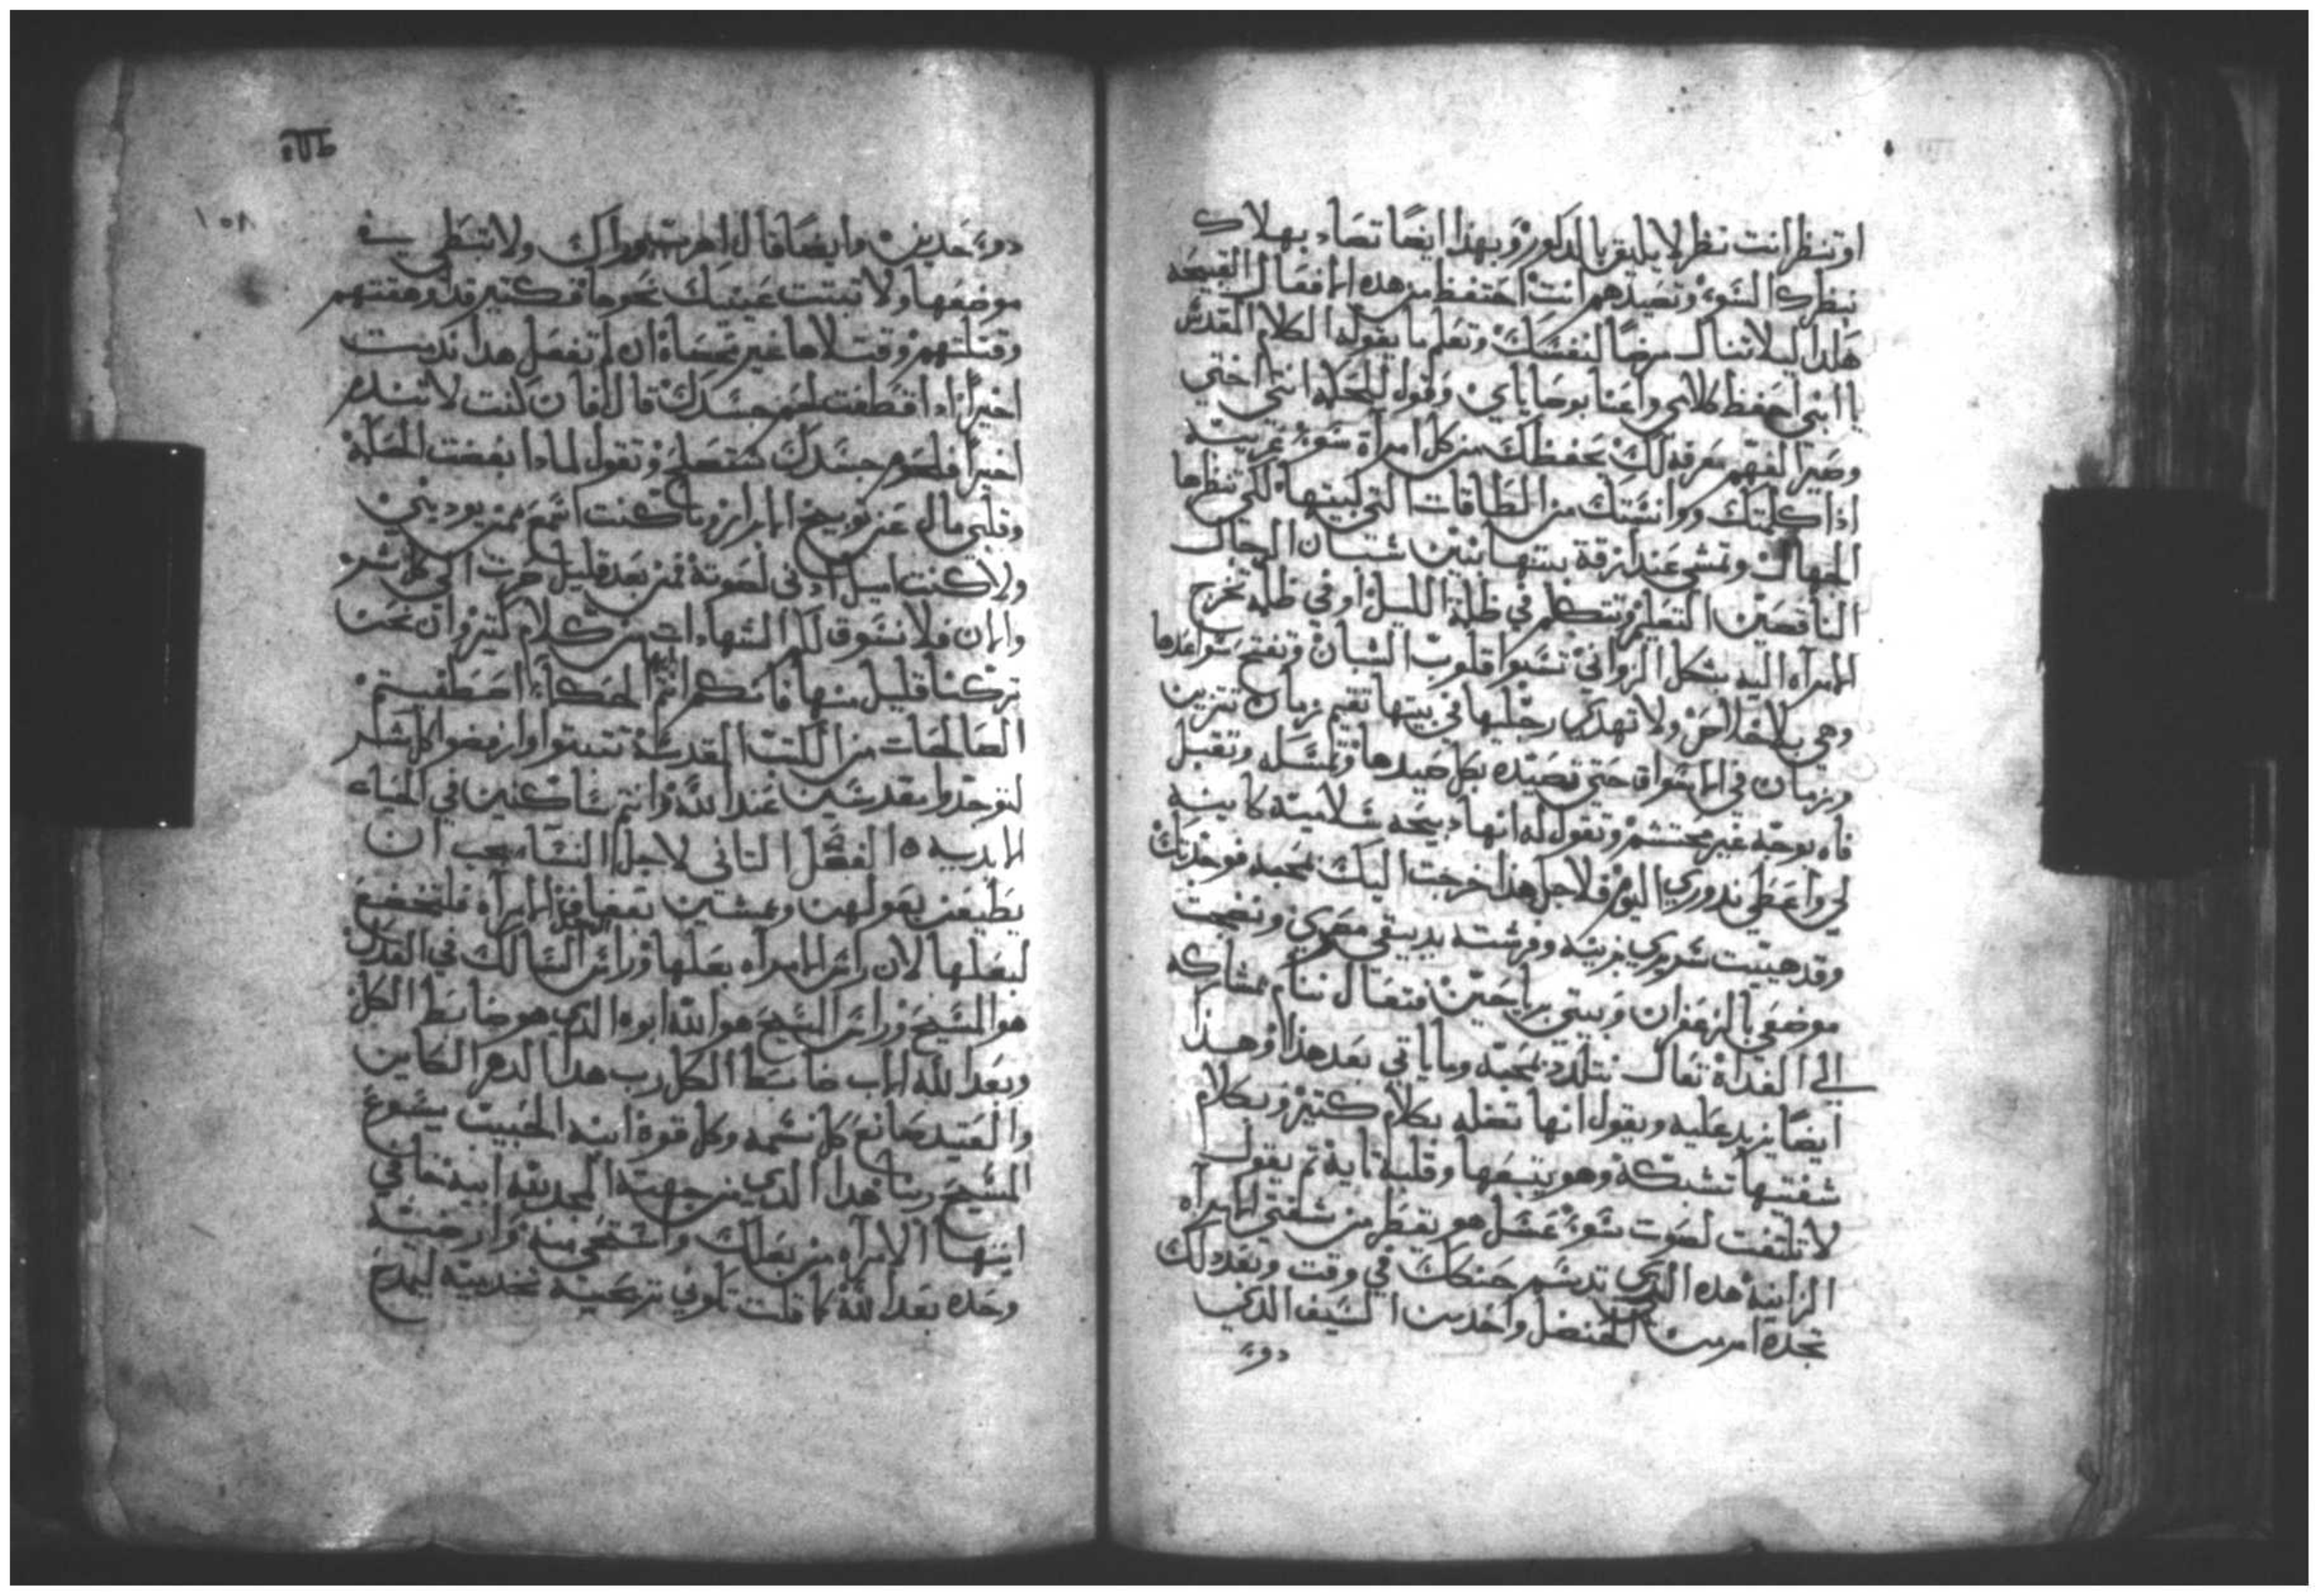 او تنظر انت نظر لا يليق بالدكورة وبهذا ايضًا تصاد بهلاك
بنظرك السوء وتصيدهم انت احتفظ من هده الافعال القبيحه
هكدا ليلا تنال مرضًا لنفسك وتعلم ما يقوله الكلام المقدس
يا ابني احفظ كلامي واعتنا بوصاياي وقول للحكمه انتي اختي
وصير الفهم معرفه لك يحفظك من كل امرأة سوء غريبة
اذا كلمتك ووانستك من الطاقات التي لبيتها لكي تنظرها
الجهال وتمشي عند ازقة بيتها بين شبان الرجال
الناقصين التعليم وتتكلم في ظلمة الليل او في ظلمه تخرج
الامرآه اليه بشكل الزواني تشبوا قلوب الشبان وتفتح سواعدها
وهي بلا خلاص ولا تهدي رجليها في بيتها تقيم زمان تتزين
وزمان في الاسواق حتى تصيده بكل صيدها وتمسكه وتقبل
فاه بوجه غير محتشم وتقول له انها دبيحه سلاميّة كاينه
لي واعطي ندوري اليوم فلاجل هذا خرجت اليك بمحبه فوجدتك
وقد هييت سريري بزينه وفرشته بدبيقي مصري ونضجت
موضعي بالزعفران وبيتي برياحين فتعال ننام بمشاركه
الى الغداة تعال نتلدد بمحبة وما ياتي بعد هذا وهذا
ايضًا يزيد عليه ويقول انها تضله بكلام كتير وبكلام
شفتيها تشبكه وهو يتبعها وقلبه تايه ثم يقول
لا تلتفت لصوت سوء عسل هو يقطر من شفتي الامرآه
الزانيه هده الذي تدسم حنكك في وقت وبعد دلك
تجده امر من الحنضل واحد من السيف الذي
دو
١٥٨
دو حدين وايضا قال اهرب ولا تبطي في
موضعها ولا تبتت عينيك نحوها فكتير قد وهقتهم
وقتلتهم وقتلاها غير محصاه ان لم تفعل هدا ندمت
اخيرًا اذا اقتطفت لحم جسدك قال فان كنت لا تندم
اخيرًا فلحوم جسدك ستصلح وتقول لمادا بغضت الحكمة
وقلبي مال عن توبيخ الابرار وما كنت اسمع ممن يوديني
ولا كنت اميل ادني لصوته فمن بعد قليل صرت الى كل شر
والان فلا نسوق لكم الشهادات من كلام كتير وان نحن
تركنا قليل منها فانكم انتم الحكما اصطفيتم
الصالحات من الكتب المقدسة تتبتوا وارفضوا كل شر
لتوجدوا مقدسين عند الله وانتم ساكنين في الحياه
الابديه الفصل التاني لاجل النسا يجب ان
يطيعن بعولهن وبمشين الامرآه فلتخضع
لبعلها لان راس الامرآه بعلها وراس السالك في العدل
هو المسيح وراس المسيح هو الله ابوه الدي هو ضابط الكل
وبعد الله الاب ضابط الكل رب هدا الدهر الكاين
والعتيد صانع كل نسمه وكل قوة ابنه الحبيب يسوع
المسيح ربنا هدا الدي من جهته المجد لله ابيه خافي
ايتها الامرآه من بعلك واستحي منه وارضيه
وحده بعد الله كما قلت تكوني تريحيه بخدمته ليمدح